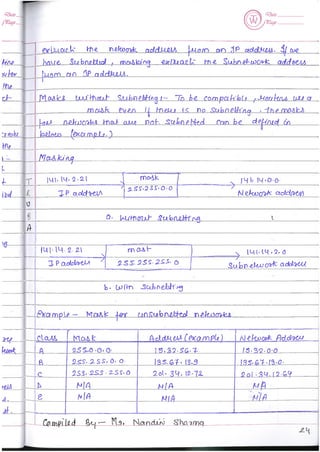 extract the network address from an IP address. If we
have Subnetted, masking extracts the Subnetwork address
from an IP address.
Masks without Subnetting:- To be compatible, routers use a
mask even if there is no subnetting. The masks
for networks that are not Subnetted can be defined in
below (example.)
Masking
141.14.2.21 mask 141.14.0.0
IP address 255.255.0.0 Network address
a. Without Subnetting
141.14.2.21 mask 141.14.2.0
IP address 255.255.255.0 Subnetwork address
b. With Subnetting
Example - Mask for unsubnetted networks
Class Mask Address (example) Network Address
A 255.0.0.0 15.32.56.7 15.32.0.0
B 255.255.0.0 135.67.13.9 135.67.13.0
C 255.255.255.0 201.34.12.72 201.34.12.69
D N/A N/A N/A
E N/A N/A N/A
Compiled By - Ms. Nandini Sharma
24